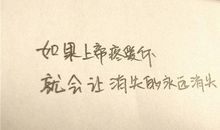 如果上帝疼爱你
就会让消失的永远消失